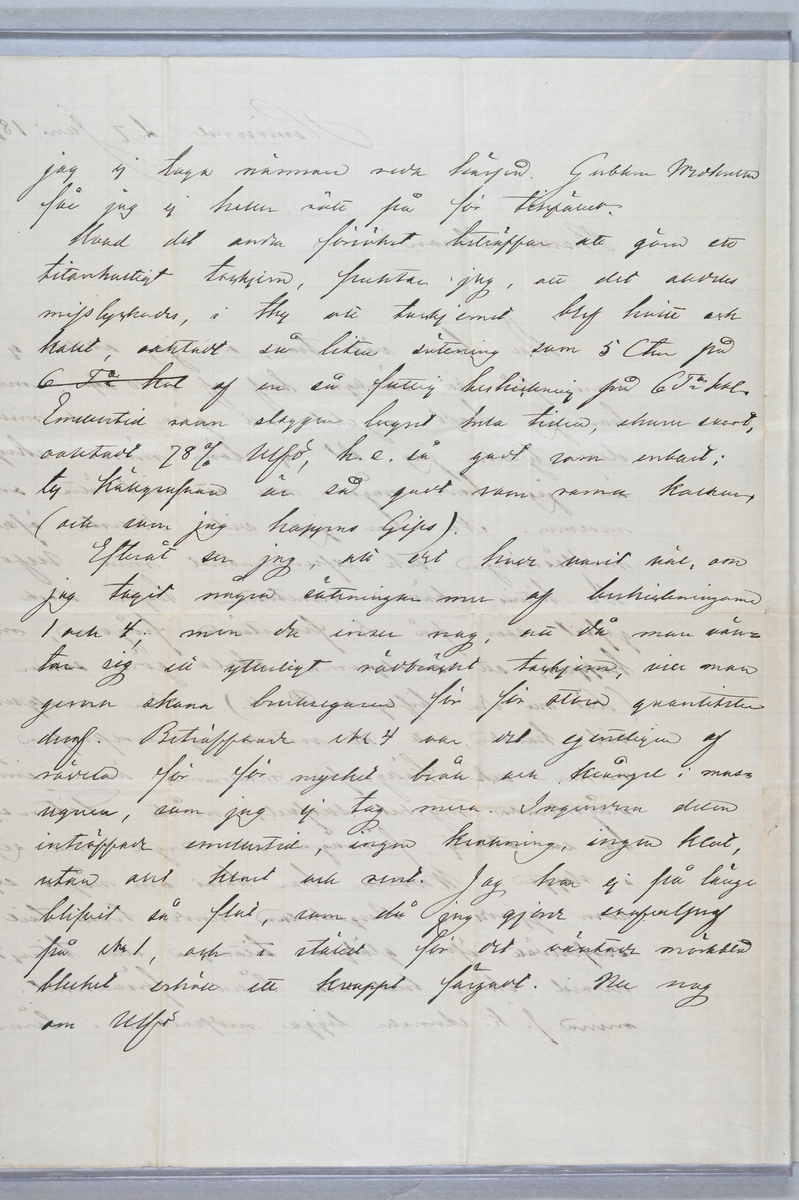 jag ej taga närmare reda härpå. Gubben
får jag ej heller rätt på för tillfället.
Hvad det andra försöket beträffar att göra ett
titanhaltigt tackjern, fruktar jag, att det andra
misslyckades, i thy att tackjernet blef hvitt och
halt, oaktadt så liten sättning som 5 Ctr på
6 T:r kol af en så fattig beskickning på 6 T:r kol.
Emellertid rann slaggen lugnt hela tiden, ehuru svart,
oaktadt 78% Ulfö, h. e. så godt som enbart;
ty är så godt som rena kalken,
(och som jag hoppas Gips).
Efteråt ser jag, att det hade varit väl, om
jag tagit några sättningar mer af beskickningarne
1 och 4; men du inser nog, att då man vän-
tar sig ett ytterligt rödbräckt tackjern, vill man
gerna skona bruksegaren för för stora quantiteter
deraf. Beträffande N:r 4 var det egentligen af
rädsla för för mycket bråk och krångel i mas-
ugnen, som jag ej tog mera. Ingendera delen
inträffade emellertid, ingen kokning, ingen klett,
utan allt klart och rent. Jag har ej på länge
blifvit så flat, som då jag gjorde svafvelprof
på N:r 1, och i stället för det väntade mörkblå
blecket erhöll ett knappt färgadt. Nu nog
om Ulfö